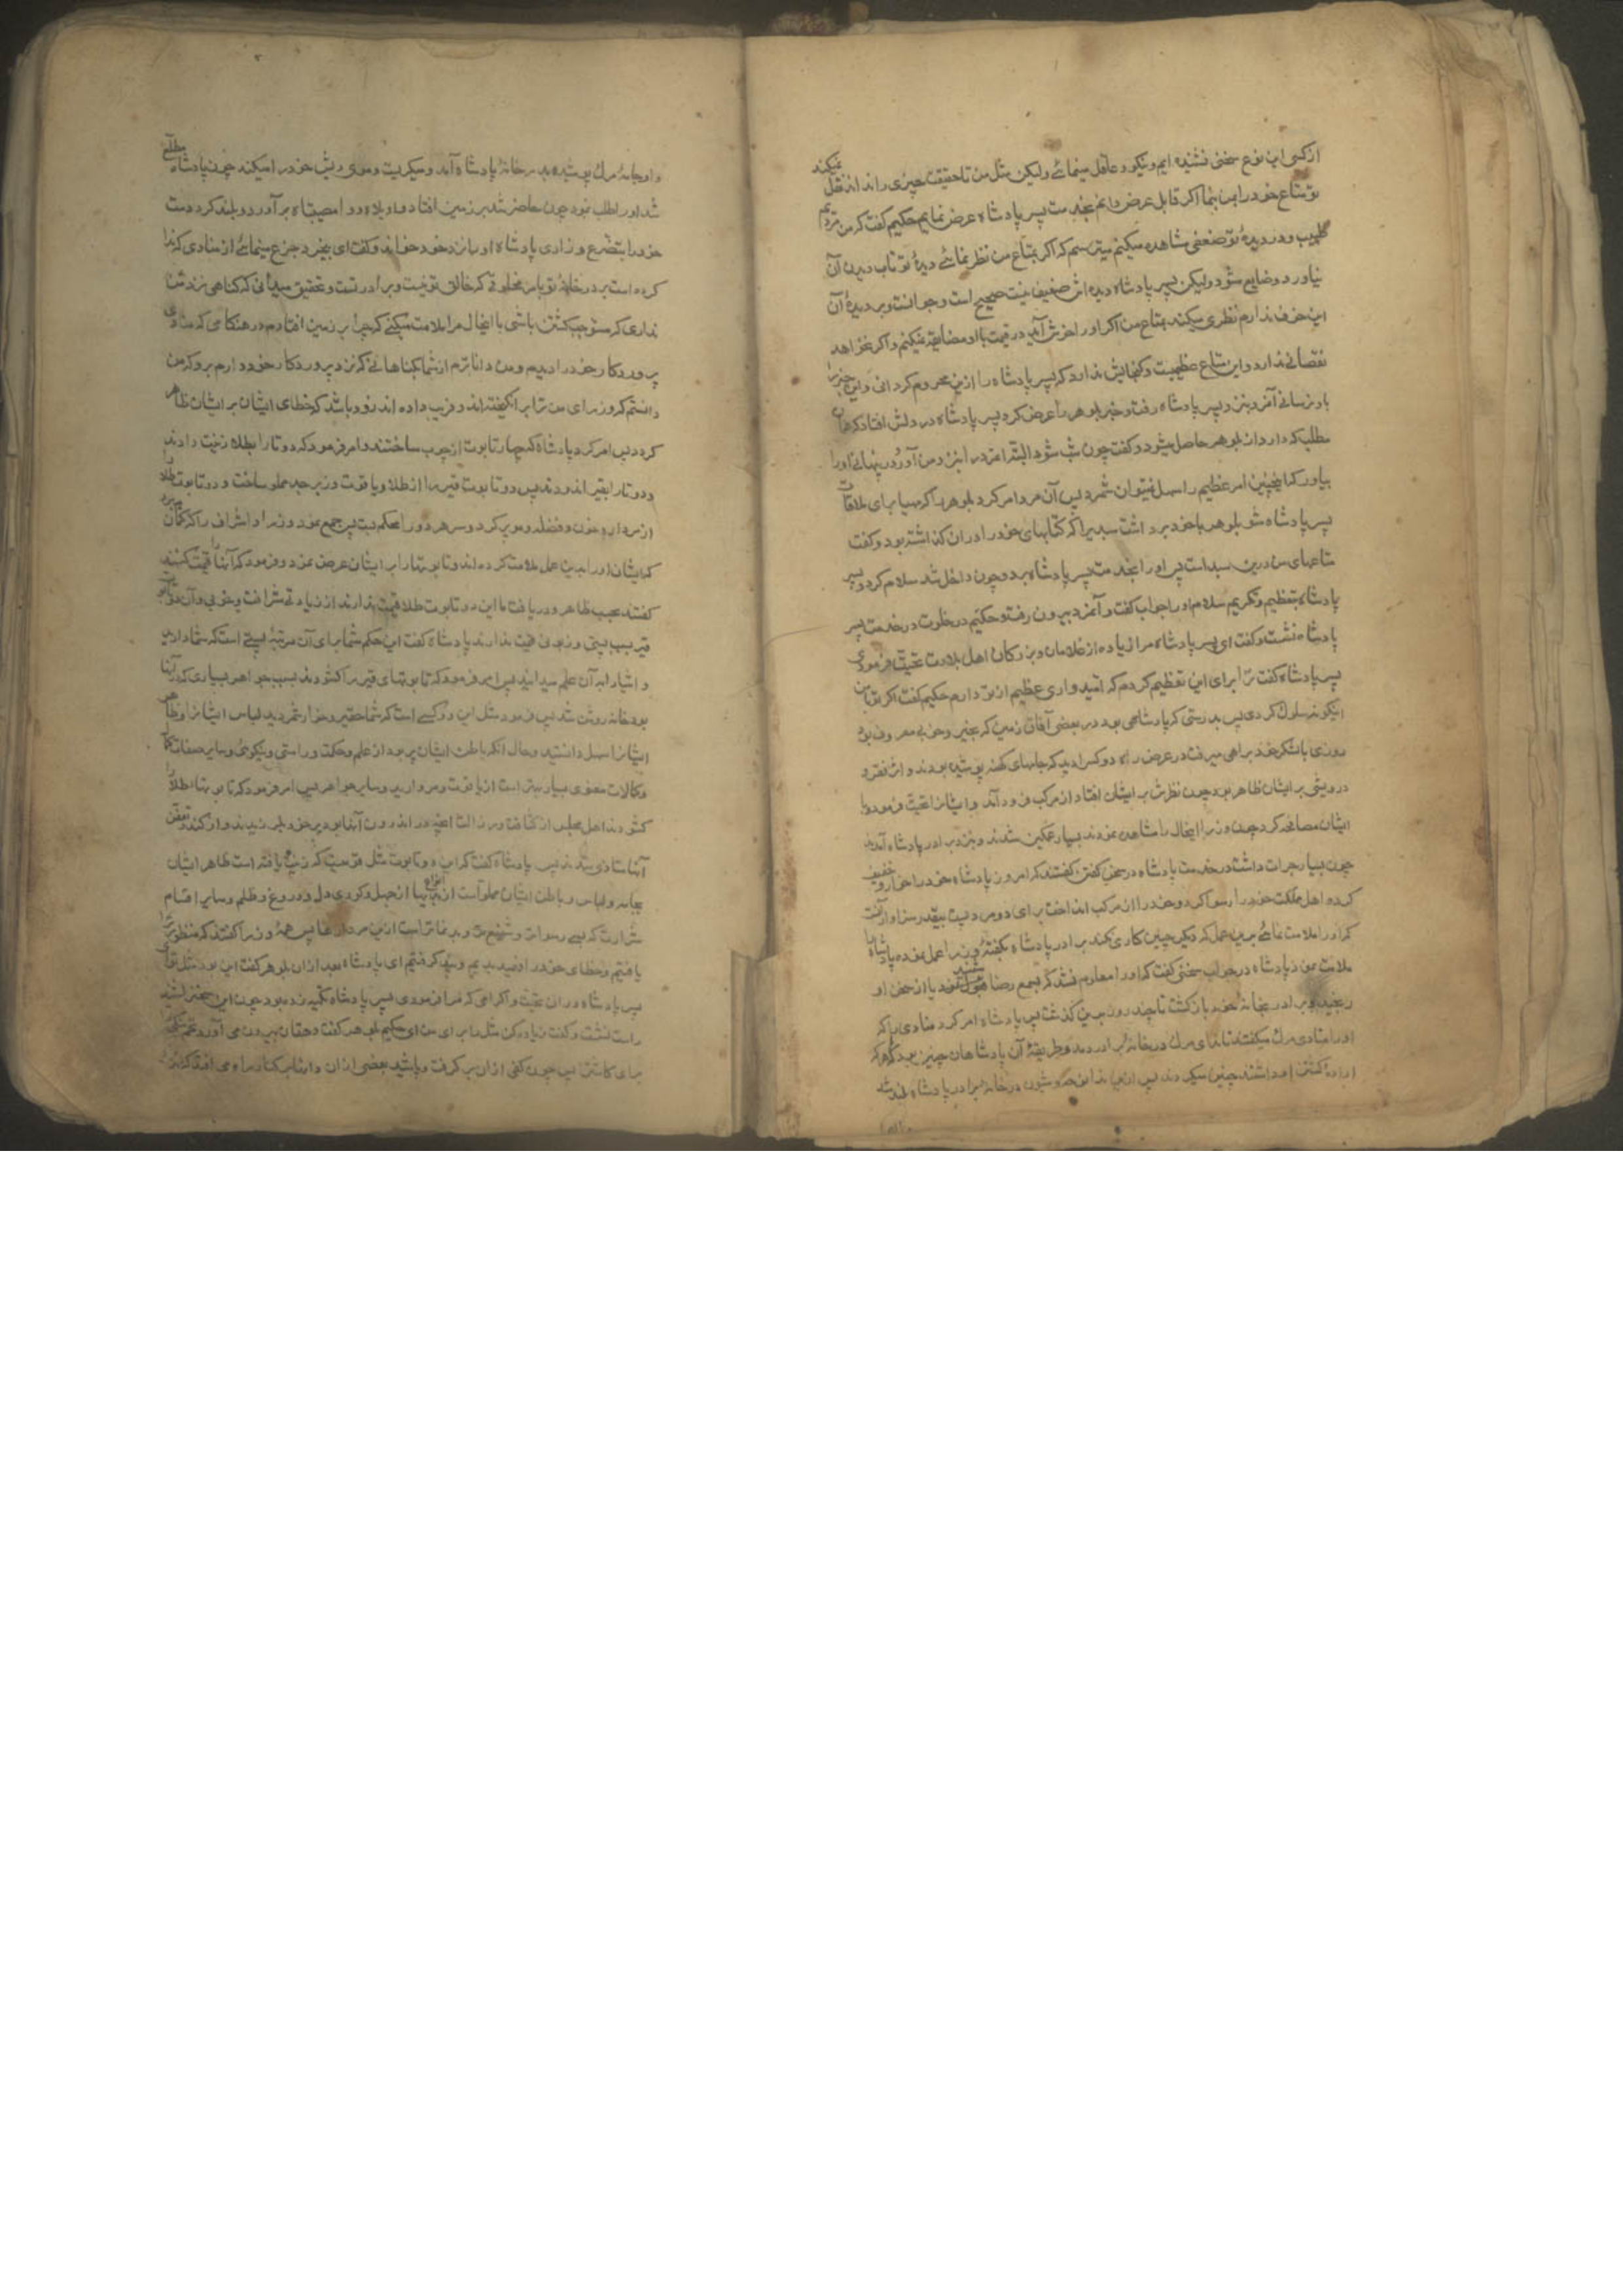 از کسی این نوع سخنی نشنیده ایم و نیکو و عاقل مینمائی ولیکن مثل من تا حقیقت چیزی را نداند نقل نمیکند
تو متاع خود را بمن بنما اگر قابل عرض دانم بخدمت پسر پادشاه عرض نمایم حکیم گفت که من مردیم
طبیب و در دیدهٔ تو ضعفی مشاهده میکنم میترسم که اگر بمتاع من نظر نمائی دیدهٔ تو تاب دیدن آن
نیاورد و ضایع شود ولیکن پسر پادشاه دیده اش ضعیف نیست صحیح است و جوانست و بر دیدهٔ آن
این خوف ندارم نظری میکند بمتاع من اگر او را خوش آید در قیمت با او مضایقه نمیکنم و اگر نخواهد
نقصانی ندارد و این متاع عظیمیست و گنجایش ندارد که پسر پادشاه را ازین محروم گردانی و این خبر را
باو نرسانی آنمرد بنزد پسر پادشاه رفت و خبر بلوهر را عرض کرد پسر پادشاه در دلش افتاد که همان
مطلب که دارد از بلوهر حاصل میشود و گفت چون شب شود البته آنمرد را بنزد من آورد در پنهانی او را
بیاور که اینچنین امر عظیم را سهل نمیتوان شمرد پس آن مرد امر کرد بلوهر را که مهیا برای ملاقات
پسر پادشاه شو بلوهر با خود برداشت سبدیرا که کتابهای خود را در ان گذاشته بود و گفت
متاعهای من درین سبد است پس او را بخدمت پسر پادشاه برد و چون داخل شد سلام کرد و پسر
پادشاه بتعظیم و تکریم سلام او را جواب گفت و آنمرد بیرون رفت و حکیم در خلوت در خدمت پسر
پادشاه نشست و گفت ای پسر پادشاه مرا زیاده از غلامان و بزرگان اهل بلادت تحیت فرمودی
پسر پادشاه گفت ترا برای این تعظیم کردم که امیدواری عظیم از تو دارم حکیم گفت اگر تو با من
اینگونه سلوک کردی پس بدرستی که پادشاهی بود در بعضی آفاق زمین که بخیر و خوبی معروف بود
روزی با لشکر خود براهی میرفت در عرض راه دو کس را دید که جامهای کهنه پوشیده بودند و اثر فقر و
درویشی بر ایشان ظاهر بود چون نظرش بر ایشان افتاد از مرکب فرود آمد و ایشانرا تحیت فرمود و با
ایشان مصافحه کرد چون وزرا اینحال را مشاهده نمودند بسیار غمگین شدند و بنزد برادر پادشاه آمدند
چون بسیار جرات داشت در خدمت پادشاه در سخن گفتن گفتند که امروز پادشاه خود را خوار و خفیف
کرد و اهل مملکت خود را رسوا کرد و خود را از مرکب انداخت برای دو مرد پست بیقدر سزاوار آنست
که او را ملامت نمائی برین عمل که دیگر چنین کاری نکند برادر پادشاه بگفتهٔ وزرا عمل نموده پادشاه را
ملامت نمود پادشاه در جواب سخنی گفت که او را معلوم نشد که بسمع رضا شنید یا از سخن او
رنجید و برادر بخانهٔ خود بازگشت تا چند روز برین گذشت پس پادشاه امر کرد منادی را که
او را منادی مرک میگفتند تا ندای مرک در خانهٔ برادر دهد و طریقهٔ آن پادشاهان چنین بود که هر که
ارادهٔ کشتن او داشتند چنین میکردند پس ازین ندا نوحه و شیون در خانهٔ برادر پادشاه بلند شد
و او جامهٔ مرک پوشیده بدر خانهٔ پادشاه آمد و میگریست و موی ریش خود را میکند چون پادشاه مطلع
شد او را طلب نمود چون حاضر شد بر زمین افتاد و واویلاه و وا مصیبتاه برآورد و بلند کرد دست
خود را بتضرع و زاری پادشاه او را نزد خود خواند و گفت ای بیخرد جزع مینمائی از منادی که ندا
کرده است بر در خانهٔ تو بامر مخلوقی که خالق تو نیست و برادر تست و تحقیق میدانی که گناهی نزد من
نداری که مستوجب کشتن باشی با اینحال مرا ملامت میکنی که چرا بر زمین افتادم در هنگامی که منادی
پروردگار خود را دیدم و من داناترم از شما بگناهانی که نزد پروردگار خود دارم برو که من
دانستم که وزرای من ترا برانگیخته اند و فریب داده اند زود باشد که خطای ایشان بر ایشان ظاهر
گردد پس امر کرد پادشاه که چهار تابوت از چوب ساختند و امر فرمود که دو تا را بطلا زینت دادند
و دو تا را بقیر اندودند پس دو تابوت قیر را از طلا و یاقوت و زبرجد مملو ساخت و دو تابوت طلا را
از مردار و خون و فضله پر کرد و سر هر دو را محکم بست پس جمع نمود وزرا و اشراف را که گمان
که ایشان او را بدین عمل ملامت کرده اند و تابوتها را بر ایشان عرض نمود و فرمود که آنها را قیمت کنند
گفتند بحسب ظاهر و دریافت ما این دو تابوت طلا قیمت ندارند از زیادتی شرافت و خوبی و آن دو تابوت
قیر بسبب پستی و زبونی قیمت ندارند پادشاه گفت این حکم شما برای آن مرتبهٔ پستی است که شما دارید
و اشیا را به آن علم میدانید پس امر فرمود که تابوتهای قیر را گشودند بسبب جواهر بسیاری که در آنها
بود خانه روشن شد پس فرمود مثل این دو کسی است که شما حقیر و خوار شمردید لباس ایشانرا و ظاهر
ایشانرا سهل دانستید و حال آنکه باطن ایشان پر بود از علم و حکمت و راستی و نیکوئی و سایر صفات کمال
و کمالات معنوی بسیار بهتر است از یاقوت و مروارید و سایر جواهر پس امر فرمود که تابوتها طلا را
گشودند اهل مجلس از کثافت و رذالت آنچه در اندرون آنها بود بر خود بلرزیدند و از گند و تعفن
آنها متاذی شدند پس پادشاه گفت که این دو تابوت مثل قومیست که زینت یافته است ظاهر ایشان
بجامه و لباس و باطن ایشان مملو است از انواع بدیها از جهل و کوری دل و دروغ و ظلم و سایر اقسام
شرارت که بسی رسواتر و شنیع تر و بدنماتر است ازین مردارها پس همهٔ وزرا گفتند که منظور ترا
یافتیم و خطای خود را فهمیدیم و پند گرفتیم ای پادشاه بعد از ان بلوهر گفت این بود مثل تو ای
پسر پادشاه در ان تحیت و اکرامی که مرا فرمودی پسر پادشاه تکیه زده بود چون این سخن شنید
راست نشست و گفت زیاده کن مثل را برای من ای حکیم بلوهر گفت دهقان بیرون می آورد تخم نیکو
برای کاشتن پس چون کفی از ان برگرفت و پاشید بعضی از ان دانها بر کنار راه می افتد که